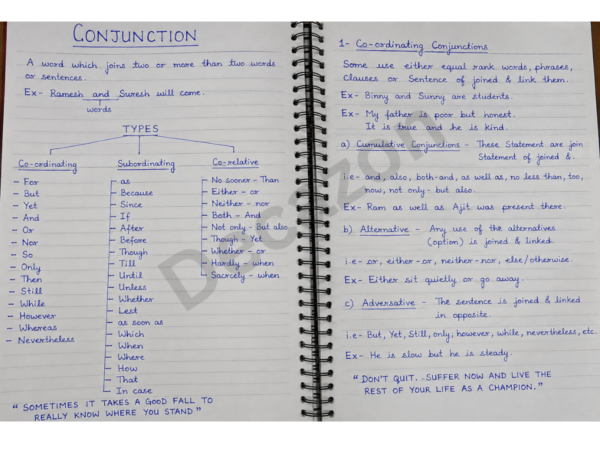 CONJUNCTION
A word which joins two or more than two words
or sentences.
Ex- Ramesh and Suresh will come.
words
TYPES
Co-ordinating
- For
- But
- Yet
- And
- Or
- Nor
- So
- Only
- Then
- Still
- While
- However
- Whereas
- Nevertheless
Subordinating
- as
- Because
- Since
- If
- After
- Before
- Though
- Till
- Until
- Unless
- Whether
- Lest
- as soon as
- Which
- When
- Where
- How
- That
- In case
Co-relative
- No sooner - Than
- Either - or
- Neither - nor
- Both - And
- Not only - But also
- Though - Yet
- Whether - or
- Hardly - when
- Sacrcely - when
"SOMETIMES IT TAKES A GOOD FALL TO
REALLY KNOW WHERE YOU STAND"
1- Co-ordinating Conjunctions
Some use either equal rank words, phrases,
clauses or Sentence of joined & link them.
Ex- Binny and Sunny are students.
Ex- My father is poor but honest.
It is true and he is kind.
a) Cumulative Conjunctions - These Statement are join
Statement of joined &.
i.e- and, also, both-and, as well as, no less than, too,
now, not only - but also.
Ex- Ram as well as Ajit was present there.
b) Alternative - Any use of the alternatives
(option) is joined & linked.
i.e- or, either-or, neither-nor, else/otherwise.
Ex- Either sit quielly or go away.
c) Adversative - The sentence is joined & linked
in opposite.
i.e- But, Yet, Still, only, however, while, nevertheless, etc.
Ex- He is slow but he is steady.
"DON'T QUIT. SUFFER NOW AND LIVE THE
REST OF YOUR LIFE AS A CHAMPION."